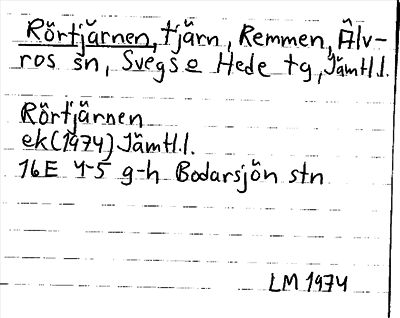 Rörtjärnen, tjärn, Remmen, Älv-
ros sn, Svegs o Hede tg, Jämtl.l.
Rörtjärnen
ek(1974) Jämtl.l.
16E 4-5 g-h Bodarsjön stn
LM 1974